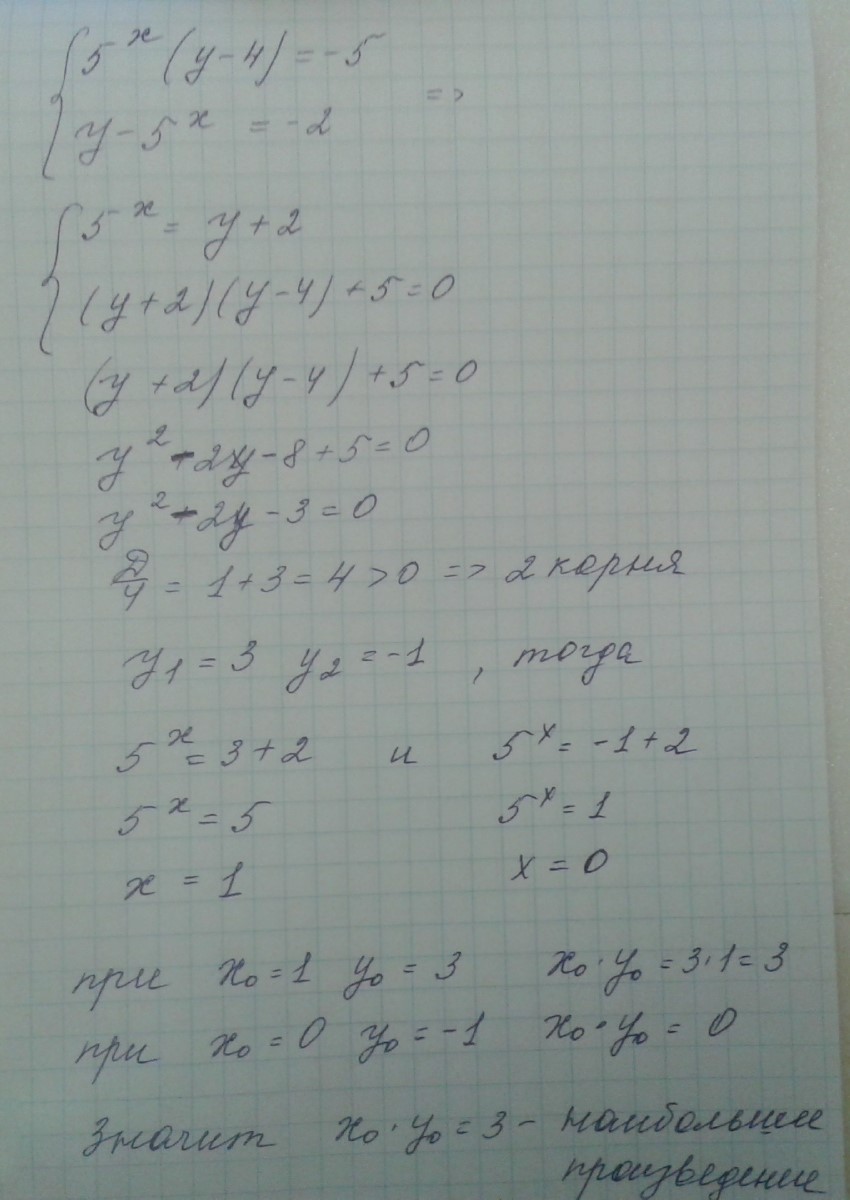 5^x (y-4) = -5
y - 5^x = -2 =>
5^x = y + 2
(y+2)(y-4)+5=0
(y+2)(y-4)+5=0
y^2-2y-8+5=0
y^2-2y-3=0
D/4 = 1+3=4>0 => 2 корня
y1 = 3 y2 = -1 , тогда
5^x = 3+2 и 5^x = -1+2
5^x = 5 5^x = 1
x = 1 x = 0
при x0=1 y0=3 x0·y0=3·1=3
при x0=0 y0=-1 x0·y0=0
Значит x0·y0=3 - наибольшее
произведение